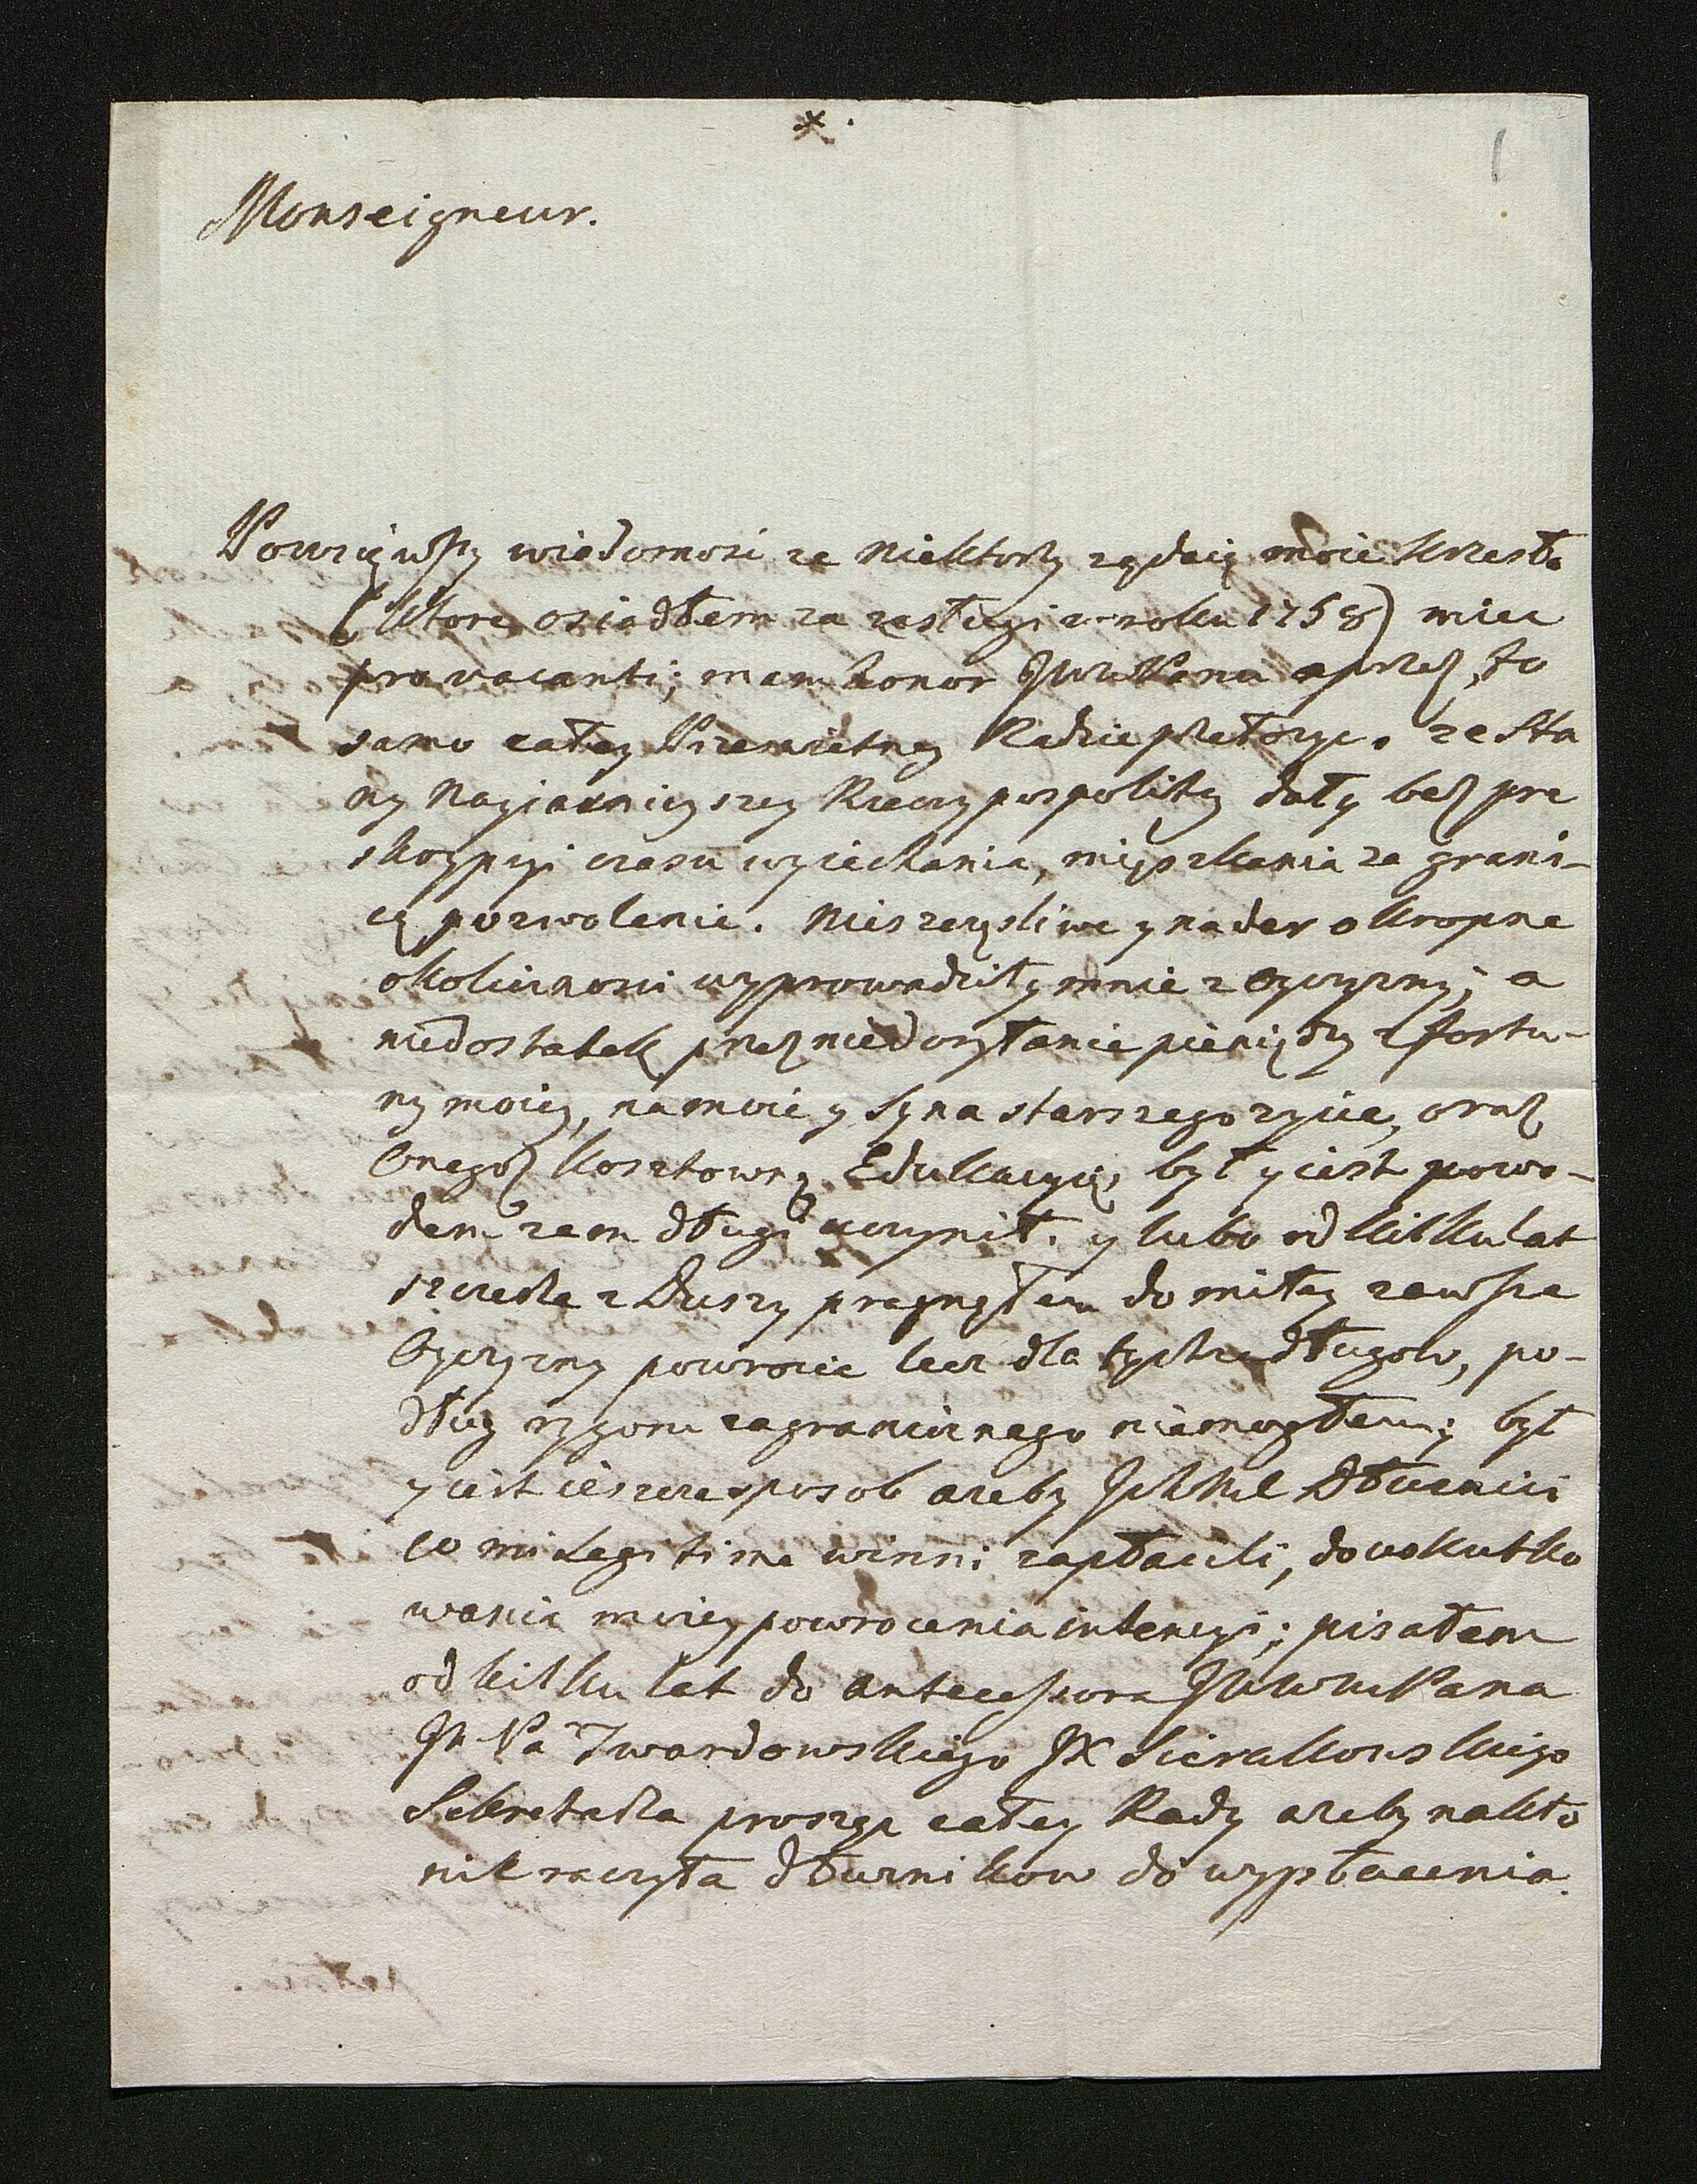 *.
1
Monseigneur.
Powziąwszy wiadomosc ze niektorzy żądaią moie krzesło
(ktore osiadłem za zasługi w roku 1758) miec
pro vacanti; mam honor JWW Panu a przez to
samo całey Prześwietney Radzie przełozyc, ze Sta
ny Nayiasnieyszey Rzeczypospolitey dały bez pre
skrypcyi czasu wyiechania, mięszkania za grani-
cą pozwolenie. Nieszczęsliwe y nader okropne
okolicznosci wyprowadziły mnie z Oyczyzny; a
niedostatek przez niedosyłanie pieniędzy z fortu-
ny moiey, na moie y Syna starszego zycie, oraz
Onegoz kosztowną Edukacyią, był y iest powo-
dem zem długi uczynił. y lubo od kilku lat
szczerze z Duszy pragnąłem do miłey zawsze
Oyczyzny powrocic lecz dla tychze długow, po-
dług rygoru zagranicznego niemogłem; był
y iest ieszcze sposob azeby Ichmc Dłuznici
co mi Legitime winni zapłacili, do uskutko
wania moiey powrocenia intencyi; pisałem
od kilku lat do antecessora JWW Pana
JP Pa Twardowskiego JX Sierakowskiego
Sekretarza prosząc całey Rady azeby nakło
nic raczyła dłuznikow do wypłacenia